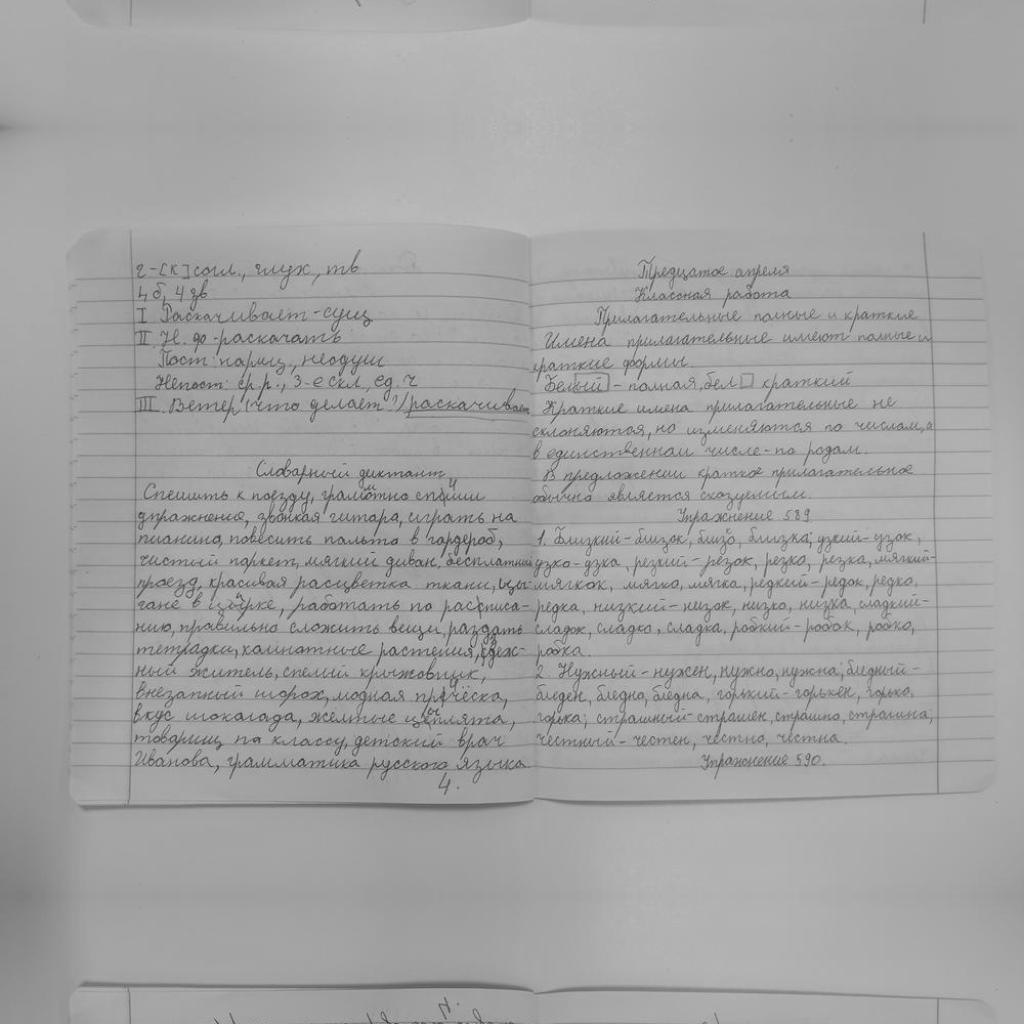 г-[к] согл., глух, тв
4 б, 4 зв
I Раскачивает-сущ
II Н. ф-раскачать
Пост: нариц., неодуш
Непост: ср.р., 3-е скл, ед. ч
III. Ветер (что делает?) раскачивает
Словарный диктант
Спешить к поезду, грамотно спиши
упражнение, звонкая гитара, играть на
пианино, повесить пальто в гардероб,
чистый паркет, мягкий диван, бесплатный
проезд, красивая расцветка ткани, цы-
гане в цирке, работать по расписа-
нию, правильно сложить вещи, раздать
тетрадки, комнатные растения,
ный житель, спелый крыжовник,
внезапный шорох, модная причёска,
вкус шоколада, желтые цыплята,
товарищ по классу, детский врач
Иванова, грамматика русского языка
4.
Тредцатое апреля
Классная работа
Прилагательные полные и краткие
Имена прилагательные имеют полные и
краткие формы.
Белый - полная, бел краткий
Краткие имена прилагательные не
склоняются, но изменяются по числам, а
в единственном числе-по родам.
В предложении краткое прилагательное
обычно является сказуемым.
Упражнение 589
1. Близкий-близок, близко, близка; узкий-узок,
узко-узка, резкий-резок, резко, резка, мягкий-
мягкок, мягко, мягка, редкий-редок, редко,
редка, низкий-низок, низко, низка, сладкий-
сладок, сладко, сладка, робкий-робок, робко,
робка.
2. Нужный-нужен, нужно, нужна; бледный-
бледен, бледно, бледна, горький-горькен, горько,
горька; страшный-страшен, страшно, страшна;
честный-честен, честно, честна.
Упражнение 590.